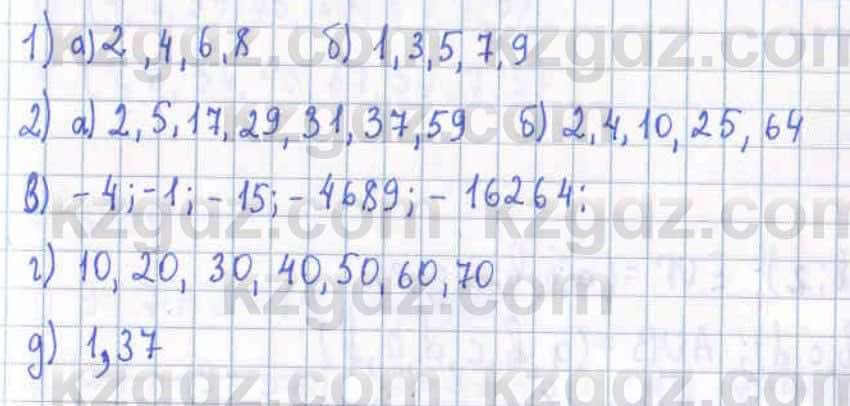 1) а) 2, 4, 6, 8 б) 1, 3, 5, 7, 9
2) а) 2, 5, 17, 29, 31, 37, 59 б) 2, 4, 10, 25, 64
в) -4; -1; -15; -4689; -16264;
г) 10, 20, 30, 40, 50, 60, 70
д) 1,37
kzgdz.com